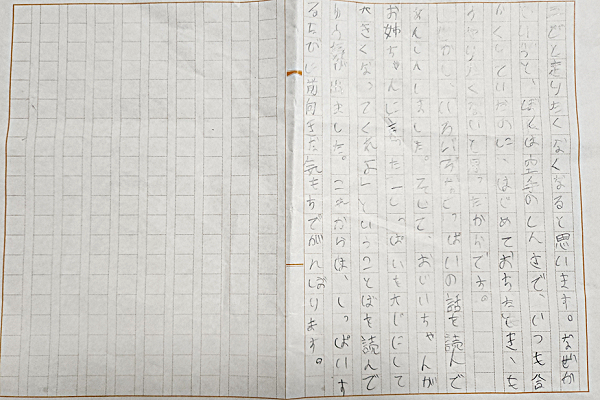 二どと走りたくなくなると思います。なぜか
というと、ぼくは空手のしんさで、いつも合
かくしていたのに、はじめておちたとき、も
うやりたくないと思ったからです。
しかし、いろいろなしっぱいの話を読んで
あんしんしました。そして、おじいちゃんが
お姉ちゃんに言った「しっぱいを大じにして
大きくなってくれよ」ということばを読んで
ゆう気が出ました。これからは、しっぱいす
るたびに前向きな気もちでがんばります。